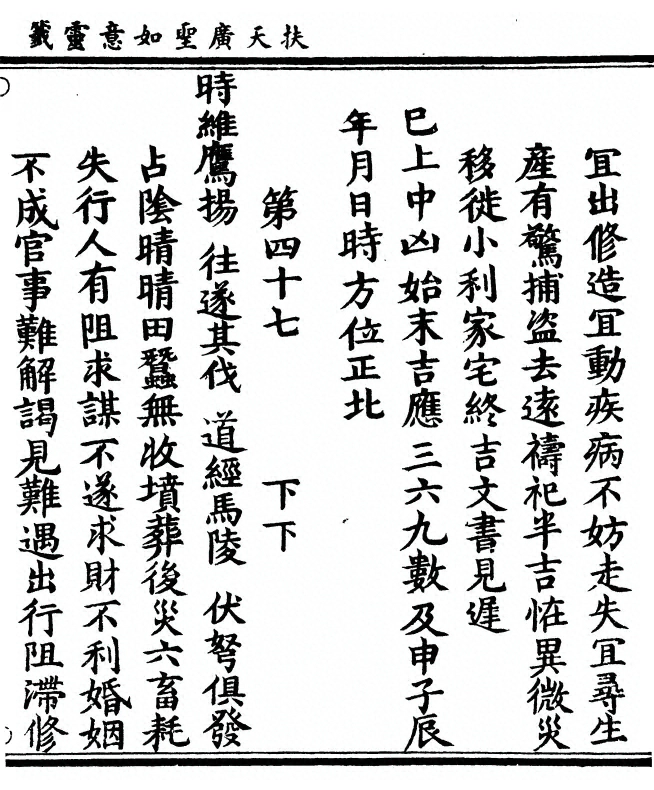 扶天廣聖如意靈籤
冝出修造冝動疾病不妨走失冝尋生
產有驚捕盜去遠禱祀半吉恠異微災
移徙小利家宅終吉文書見遲
巳上中凶始末吉應三六九數及申子辰
年月日時方位正北
第四十七 下下
時維鷹揚 往遂其伐 道經馬陵 伏弩俱發
占陰晴晴田蠶無收墳葬後災六畜耗
失行人有阻求謀不遂求財不利婚姻
不成官事難解謁見難遇出行阻滯修